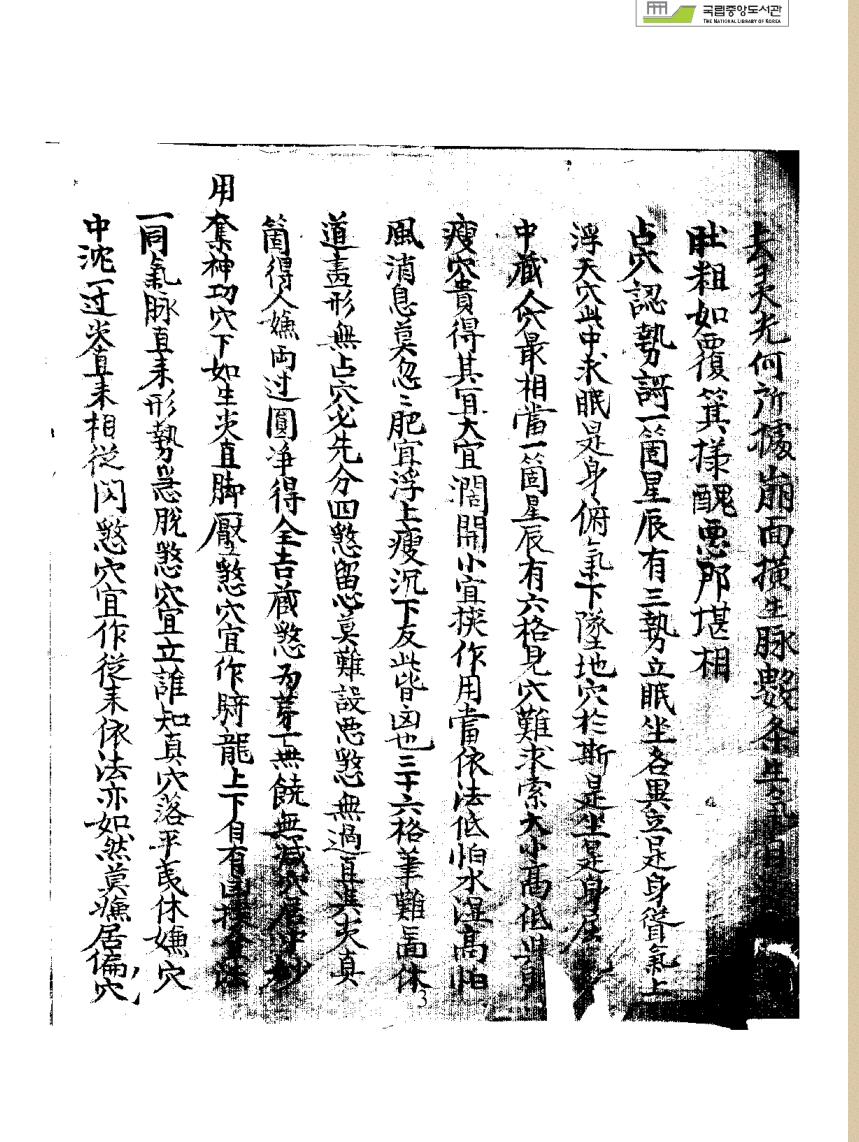 국립중앙도서관
THE NATIONAL LIBRARY OF KOREA
天光何所據崩面橫生脉數条生
肚粗如覆箕樣醜惡郍堪相
占穴認勢訶一箇星辰有三勢立眠坐各異立是身聳氣上
浮天穴此中求眠是身俯氣下墜地穴扵斯是坐是身屈
中藏人穴最相當一箇星辰有六格見穴難求索大小高低
瘦穴貴得其冝大宜濶開小宜挾作用當依法低怕水湿高怕
風消息莫忽〻肥宜浮上瘦沉下反此皆凶也三十六格筆難啚休
道盡形無占穴必先分四煞留心莫難設惡煞無過直與尖真
箇得人嫌両过圓净得全吉藏煞為芽一無饒無减穴居中妙
用奪神功穴下如生尖直脚厭煞穴宜作騎龍上下自有法
一同氣脉直来形勢急脫煞穴宜立誰知真穴落乎夷休嫌穴
中沱一过尖直来相從閃煞穴宜作從来依法亦如然莫嫌居偏穴
3